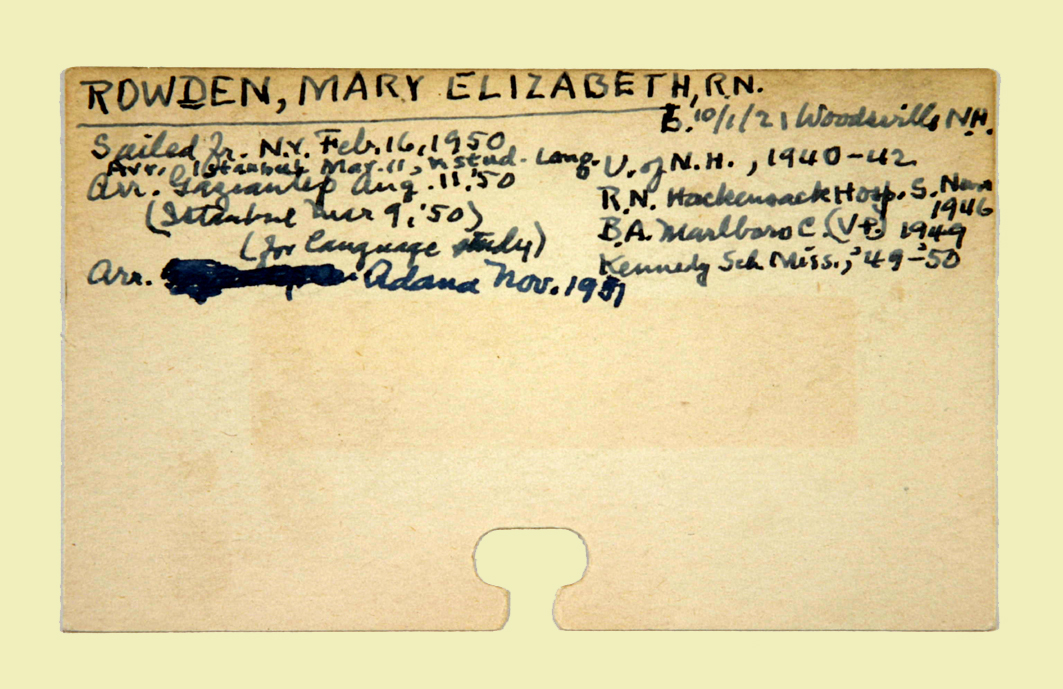 ROWDEN, MARY ELIZABETH, R.N.
B. 10/1/21 Woodsville, N.H.
Sailed fr. N.Y. Feb. 16, 1950
Arr. Istanbul Mar. 11, stud. Lang.
Arr. Gaziantep Aug. 11, '50
(Istanbul Mar 9, '50)
(for language study)
Arr. Adana Nov. 1951
U. of N.H., 1940-42
R.N. Hackensack Hosp. S. Nurs
1946
B.A. Marlboro C. (Vt.) 1949
Kennedy Sch. Miss., '49-'50